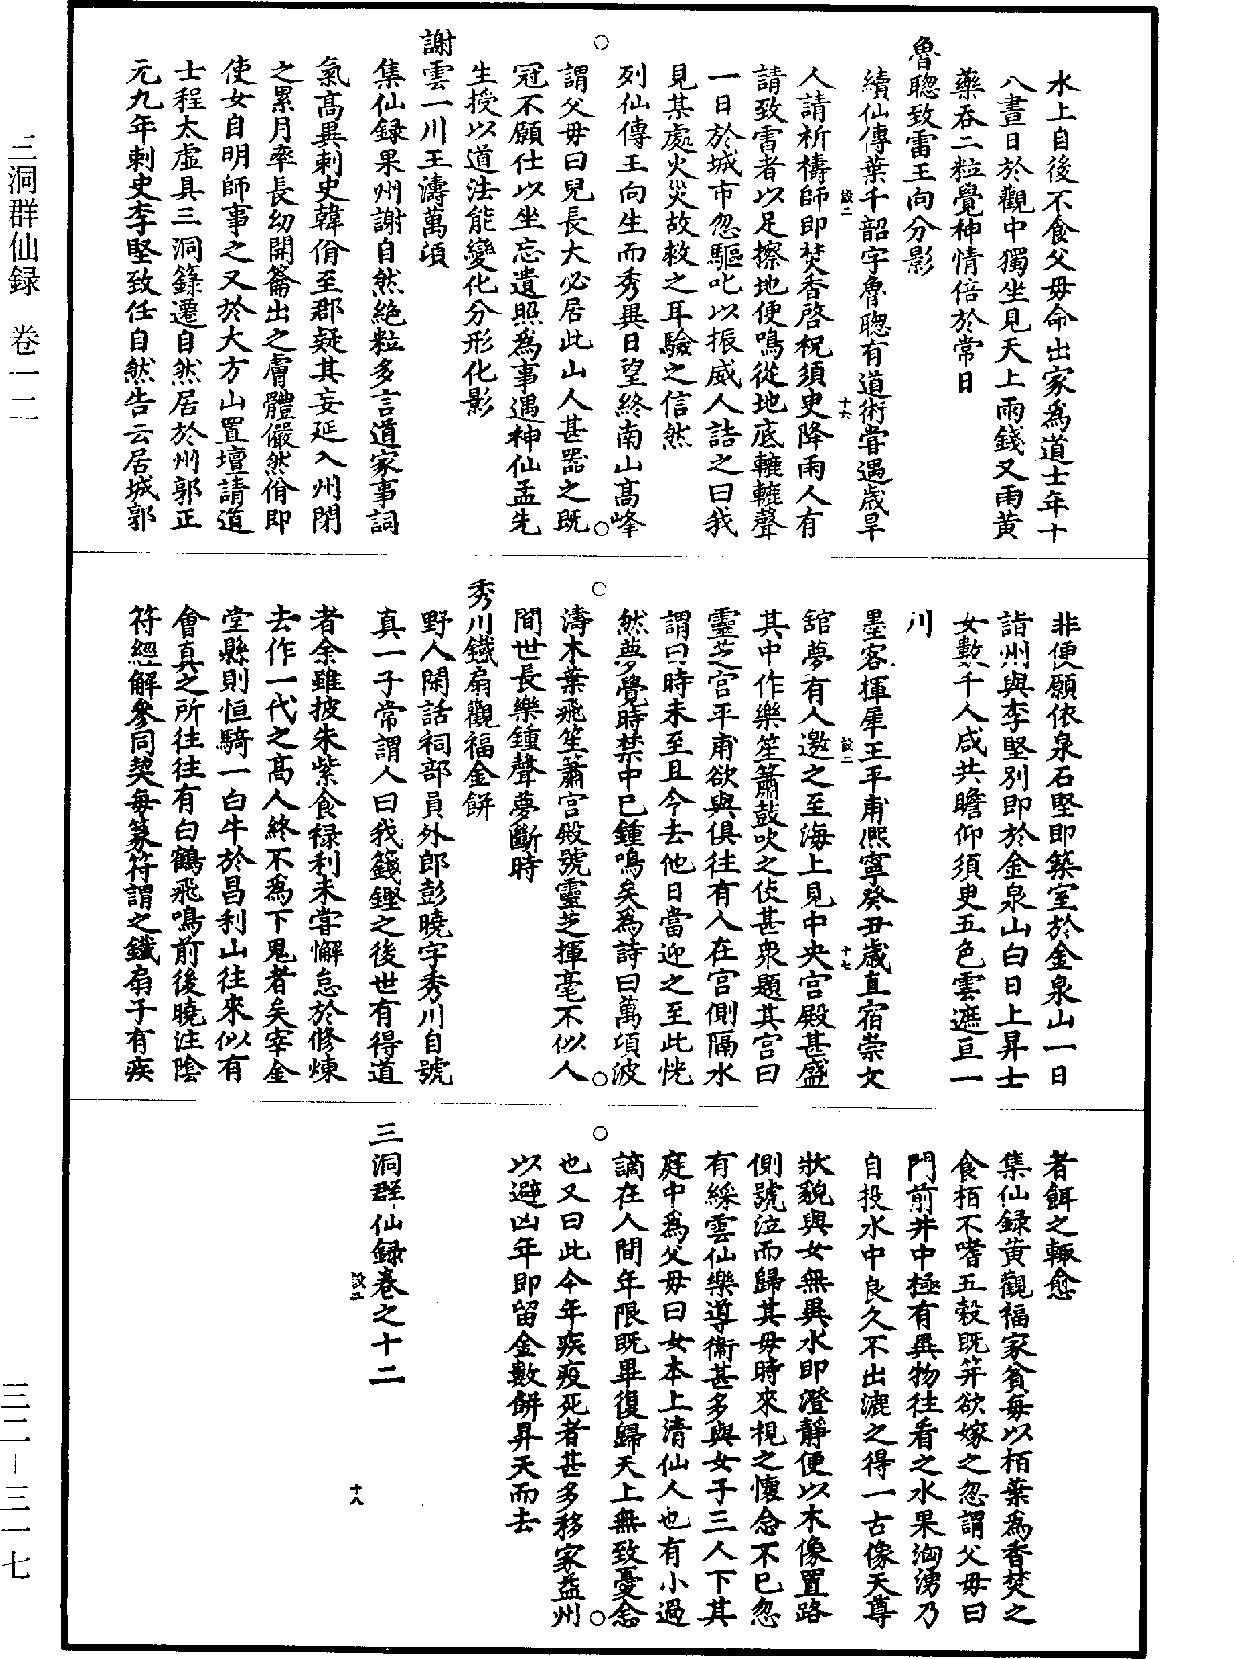 水上自後不食父母命出家爲道士年十
八晝日於觀中獨坐見天上雨錢又雨黄
藥吞二粒覺神情倍於常日
魯聰致雷王向分影
續仙傳葉千韶字魯聰有道術嘗遇歲旱
設二
十六
人請祈禱師即焚香啓祝須臾降雨人有
請致雷者以足擦地便鳴從地底轆轆聲
一日於城市忽驅叱以振威人詰之曰我
見某處火災故救之耳驗之信然
列仙傳王向生而秀異日望終南山高峰
謂父母曰兒長大必居此山人甚器之既
冠不願仕以坐忘遺照爲事遇神仙孟先
生授以道法能變化分形化影
謝雲一川王濤萬頃
集仙録果州謝自然絶粒多言道家事詞
氣高異刺史韓佾至郡疑其妄延入州閉
之累月率長幼開籥出之膚體儼然佾即
使女自明師事之又於大方山置壇請道
士程太虛具三洞籙遷自然居於州郭正
元九年刺史李堅致任自然告云居城郭
非便願依泉石堅即築室於金泉山一日
詣州與李堅別即於金泉山白日上昇士
女數千人咸共瞻仰須臾五色雲遮亘一
川
墨客揮犀王平甫熙寧癸丑歲直宿崇文
設二
十七
舘夢有人邀之至海上見中央宫殿甚盛
其中作樂笙簫鼓吹之伎甚衆題其宫曰
靈芝宫平甫欲與俱往有人在宫側隔水
謂曰時未至且令去他日當迎之至此恍
然夢覺時禁中已鍾鳴矣爲詩曰萬頃波
濤木葉飛笙簫宫殿號靈芝揮毫不似人
間世長樂鍾聲夢斷時
秀川鐵扇觀福金餅
野人閑話祠部員外郎彭曉字秀川自號
真一子常謂人曰我籛鏗之後世有得道
者余雖披朱紫食禄利未嘗懈怠於修煉
去作一代之高人終不爲下鬼者矣宰金
堂縣則恒騎一白牛於昌利山往來似有
會真之所往往有白鶴飛鳴前後曉注陰
符經解參同契每篆符謂之鐵扇子有疾
者餌之輒愈
集仙録黄觀福家貧每以栢葉爲香焚之
食栢不嗜五穀既笄欲嫁之忽謂父母曰
門前井中極有異物往看之水果洶湧乃
自投水中良久不出漉之得一古像天尊
狀貌與女無異水即澄靜便以木像置路
側號泣而歸其母時來視之懷念不已忽
有綵雲仙樂導衞甚多與女子三人下其
庭中爲父母曰女本上清仙人也有小過
謫在人間年限既畢復歸天上無致憂念
也又曰此今年疾疫死者甚多移家益州
以避凶年即留金數餅昇天而去
三洞群仙録卷之十二
設二
十八
三洞群仙録　卷一二
三二－三一七